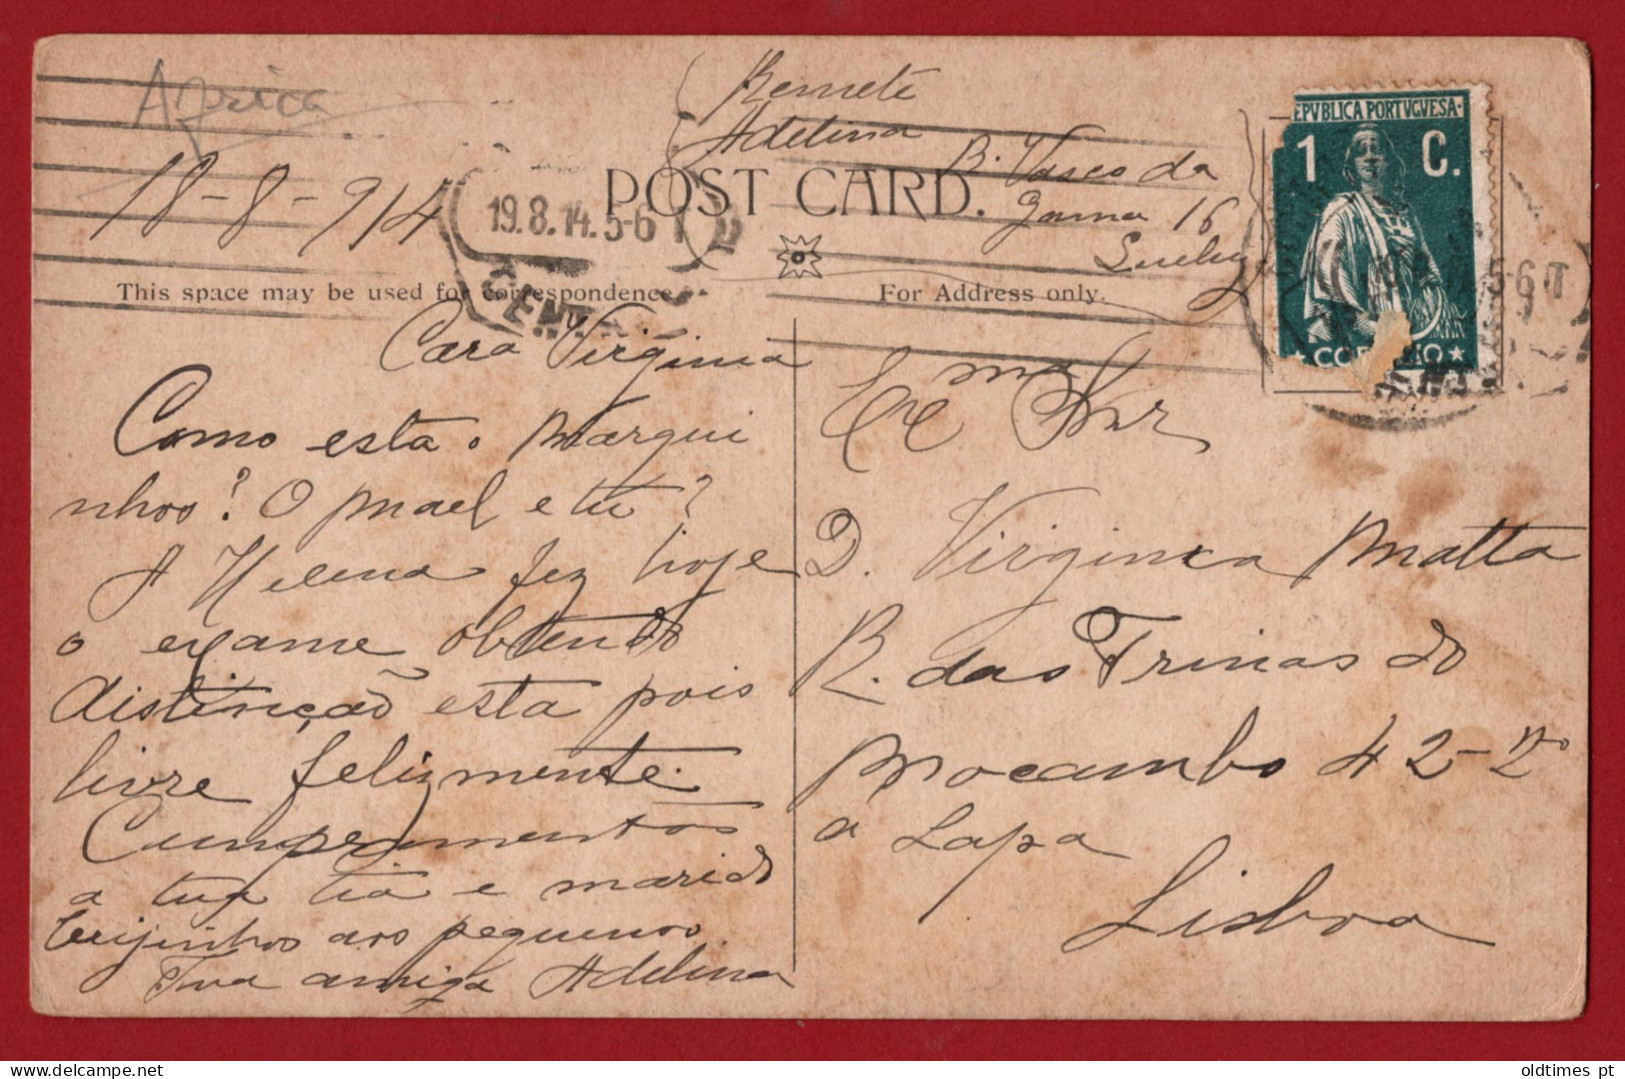 Africa
18-8-914
Remete
Adelina
R. Vasco da
Gama 16
REPVBLICA PORTVGVESA
1 C.
CORREIO
19.8.14.5-6 T
POST CARD.
This space may be used for correspondence.
For Address only.
Cara Virginia
Como está o Marqui
nhos? O Mael e tu?
A Helena fez hoje
o exame, obtendo
distincção está pois
livre felizmente.
Cumprimentos
a tua tia e marido
beijinhos aos pequenos
Tua amiga Adelina
Exma Snr
D. Virginia Matta
R. das Trinas do
Mocambo 42-2º
a Lapa
Lisboa
oldtimes pt